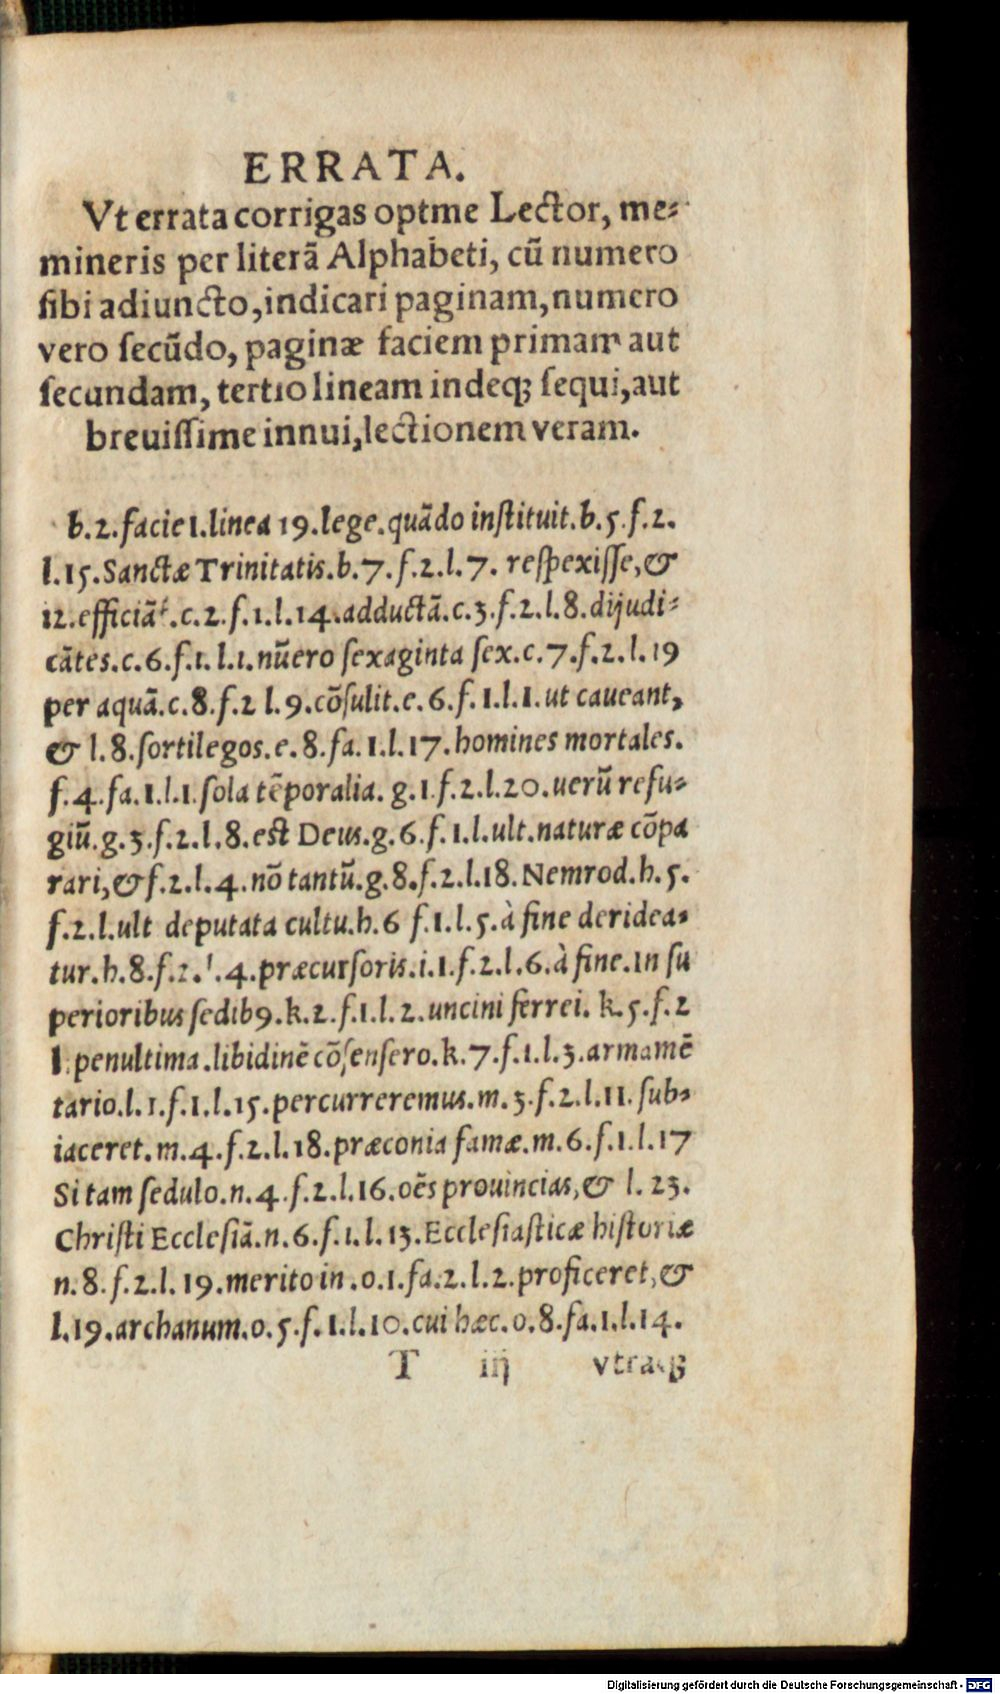 ERRATA.
Vt errata corrigas optme Lector, me⸗
mineris per literã Alphabeti, cũ numero
ſibi adiuncto, indicari paginam, numero
vero ſecũdo, paginæ faciem primam aut
ſecundam, tertio lineam indeq; ſequi, aut
breuiſſime innui, lectionem veram.
b. 2. facie 1. linea 19. lege. quãdo inſtituit. b. 5. f. 2.
l. 15. Sanctæ Trinitatis. b. 7. f. 2. l. 7. reſpexiſſe, &
12. efficiãt. c. 2. f. 1. l. 14. adductã. c. 3. f. 2. l. 8. dijudi⸗
cãtes. c. 6. f. 1. l. 1. nũero ſexaginta ſex. c. 7. f. 2. l. 19
per aquã. c. 8. f. 2 l. 9. cõſulit. e. 6. f. 1. l. 1. ut caueant,
& l. 8. ſortilegos. e. 8. fa. 1. l. 17. homines mortales.
f. 4. fa. 1. l. 1. ſola tẽporalia. g. 1. f. 2. l. 20. uerũ refu⸗
giũ. g. 3. f. 2. l. 8. eſt Deus. g. 6. f. 1. l. ult. naturæ cõpa
rari, & f. 2. l. 4. nõ tantũ. g. 8. f. 2. l. 18. Nemrod. h. 5.
f. 2. l. ult deputata cultu. h. 6 f. 1. l. 5. à fine deridea⸗
tur. h. 8. f. 2. l. 4. præcurſoris. i. 1. f. 2. l. 6. à fine. In ſu
perioribus ſedib9. k. 2. f. 1. l. 2. uncini ferrei. k. 5. f. 2
l. penultima. libidinẽ cõſenſero. k. 7. f. 1. l. 3. armamẽ
tario. l. 1. f. 1. l. 15. percurreremus. m. 3. f. 2. l. 11. ſub⸗
iaceret. m. 4. f. 2. l. 18. præconia famæ. m. 6. f. 1. l. 17
Si tam ſedulo. n. 4. f. 2. l. 16. oẽs prouincias, & l. 23.
Chriſti Eccleſiã. n. 6. f. 1. l. 13. Eccleſiaſticæ hiſtoriæ
n. 8. f. 2. l. 19. merito in. o. 1. fa. 2. l. 2. proficeret, &
l. 19. archanum. o. 5. f. 1. l. 10. cui hæc. o. 8. fa. 1. l. 14.
T iij vtraq;
Digitalisierung gefördert durch die Deutsche Forschungsgemeinschaft - DFG